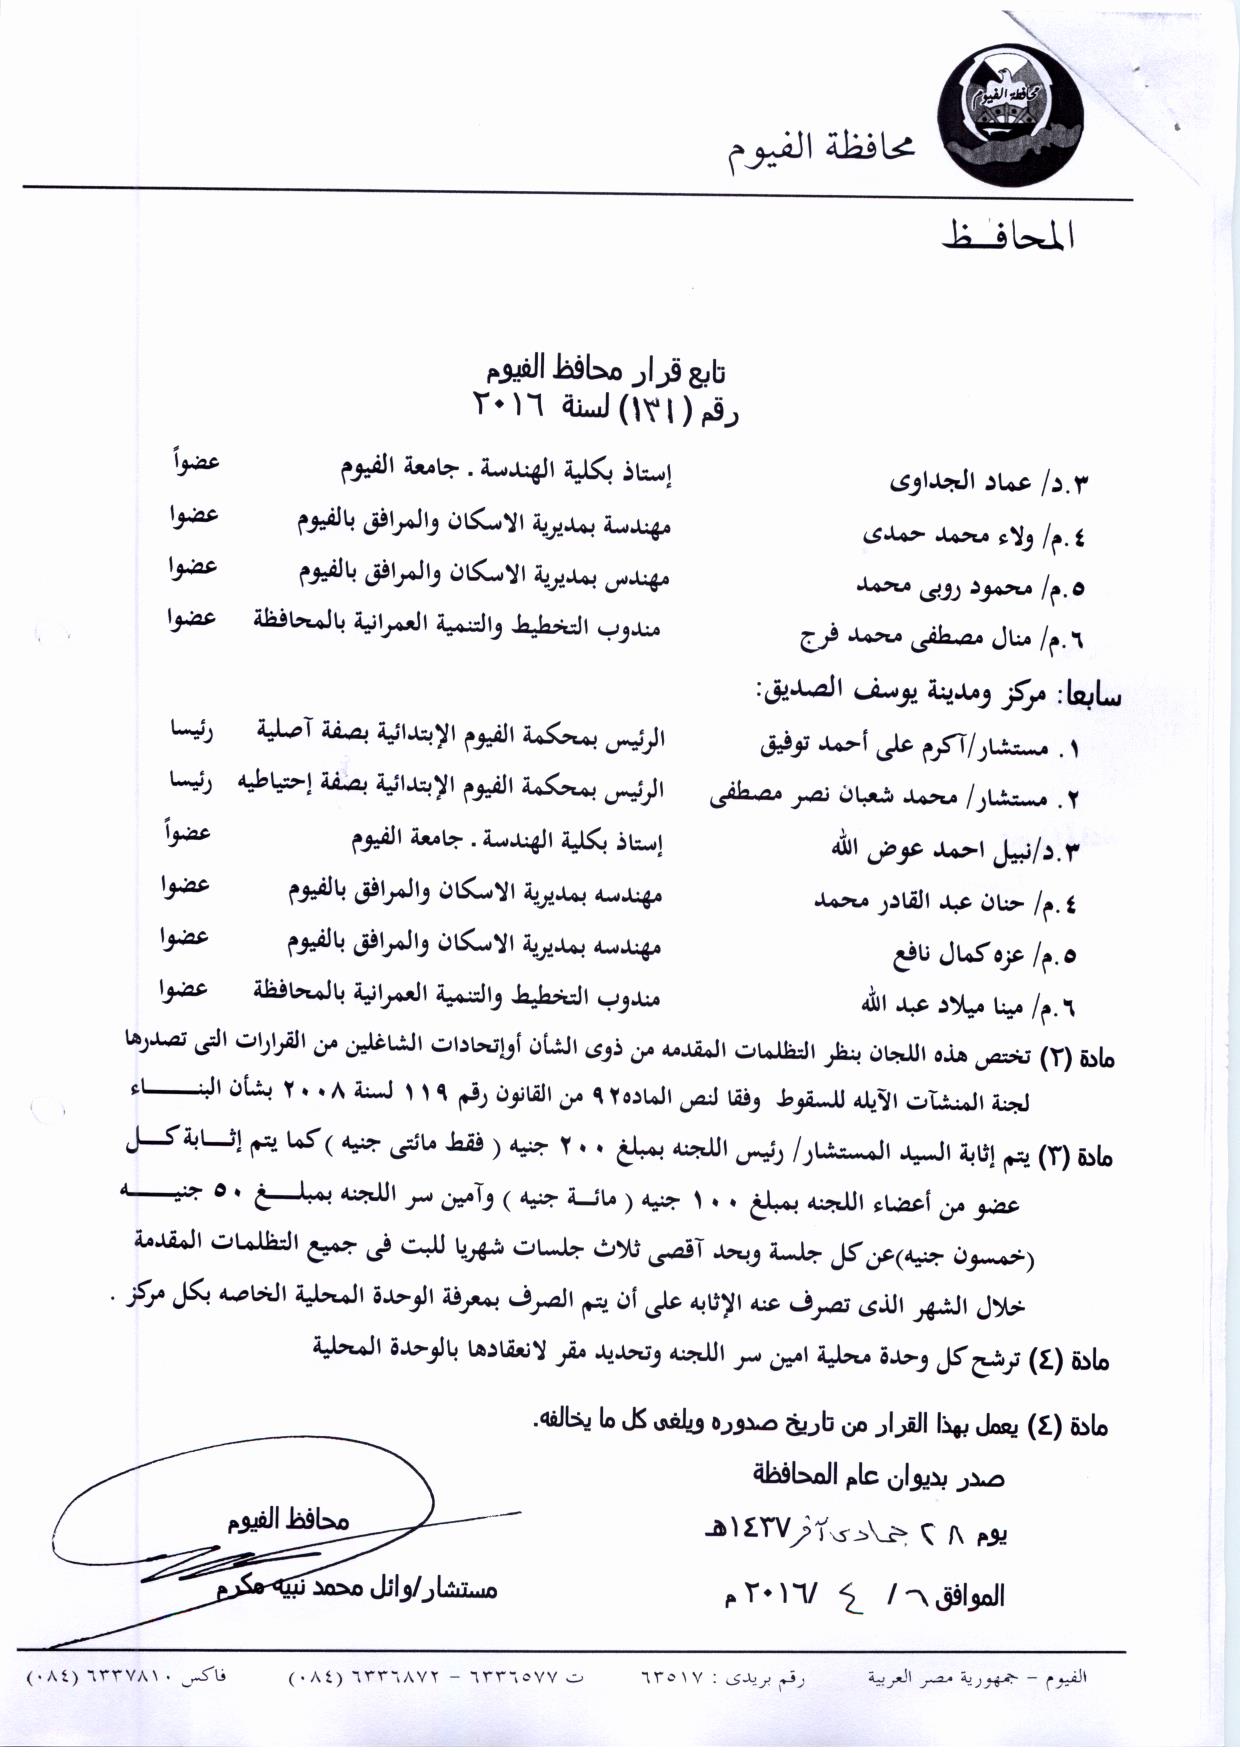 محافظة الفيوم
محافظة الفيوم
المحافـــظ
تابع قرار محافظ الفيوم
رقم (١٣١) لسنة ٢٠١٦
٣.د/ عماد الجداوى إستاذ بكلية الهندسة . جامعة الفيوم عضواً
٤.م/ ولاء محمد حمدى مهندسة بمديرية الاسكان والمرافق بالفيوم عضوا
٥.م/ محمود روبى محمد مهندس بمديرية الاسكان والمرافق بالفيوم عضوا
٦.م/ منال مصطفى محمد فرج مندوب التخطيط والتنمية العمرانية بالمحافظة عضوا
سابعا: مركز ومدينة يوسف الصديق:
١. مستشار/آكرم على أحمد توفيق الرئيس بمحكمة الفيوم الإبتدائية بصفة آصلية رئيسا
٢. مستشار/ محمد شعبان نصر مصطفى الرئيس بمحكمة الفيوم الإبتدائية بصفة إحتياطيه رئيسا
٣.د/نبيل احمد عوض الله إستاذ بكلية الهندسة . جامعة الفيوم عضواً
٤.م/ حنان عبد القادر محمد مهندسه بمديرية الاسكان والمرافق بالفيوم عضوا
٥.م/ عزه كمال نافع مهندسه بمديرية الاسكان والمرافق بالفيوم عضوا
٦.م/ مينا ميلاد عبد الله مندوب التخطيط والتنمية العمرانية بالمحافظة عضوا
مادة (٢) تختص هذه اللجان بنظر التظلمات المقدمه من ذوى الشأن أوإتحادات الشاغلين من القرارات التى تصدرها
لجنة المنشآت الآيله للسقوط وفقا لنص الماده٩٢ من القانون رقم ١١٩ لسنة ٢٠٠٨ بشأن البنـــــاء
مادة (٣) يتم إثابة السيد المستشار/ رئيس اللجنه بمبلغ ٢٠٠ جنيه ( فقط مائتى جنيه ) كما يتم إثــابة كـــل
عضو من أعضاء اللجنه بمبلغ ١٠٠ جنيه ( مائــة جنيه ) وآمين سر اللجنه بمبلــــغ ٥٠ جنيـــــه
(خمسون جنيه)عن كل جلسة وبحد آقصى ثلاث جلسات شهريا للبت فى جميع التظلمات المقدمة
خلال الشهر الذى تصرف عنه الإثابه على أن يتم الصرف بمعرفة الوحدة المحلية الخاصه بكل مركز .
مادة (٤) ترشح كل وحدة محلية امين سر اللجنه وتحديد مقر لانعقادها بالوحدة المحلية
مادة (٤) يعمل بهذا القرار من تاريخ صدوره ويلغى كل ما يخالفه.
صدر بديوان عام المحافظة
يوم ٢٨ جمادى آخر ١٤٣٧هـ
الموافق ٦ / ٤ /٢٠١٦ م
محافظ الفيوم
مستشار/وائل محمد نبيه مكرم
الفيوم – جمهورية مصر العربية رقم بريدى : ٦٣٥١٧ ت ٦٣٣٦٥٧٧ – ٦٣٣٦٨٧٢ (٠٨٤) فاكس ٦٣٣٧٨١٠ (٠٨٤)